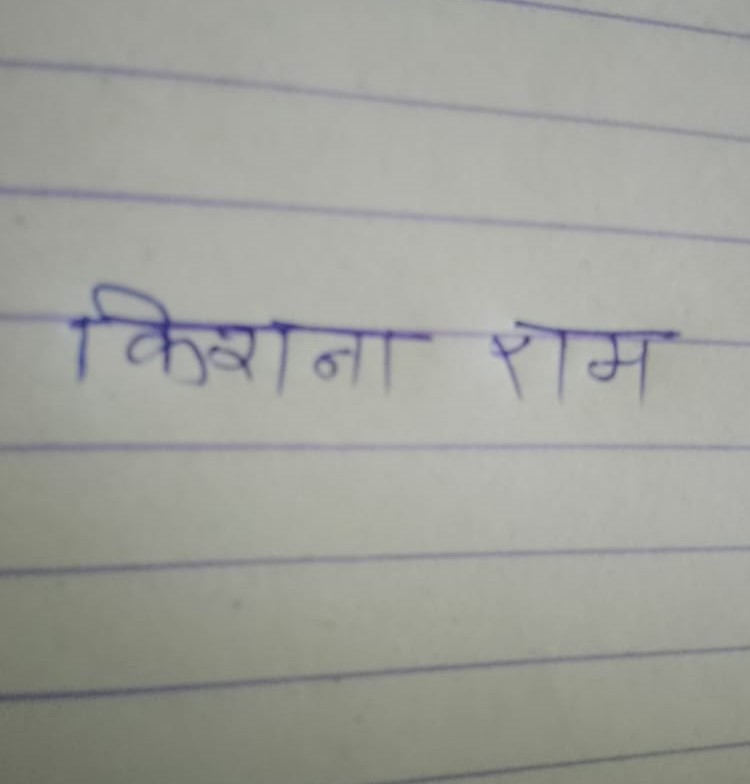 किशना राम